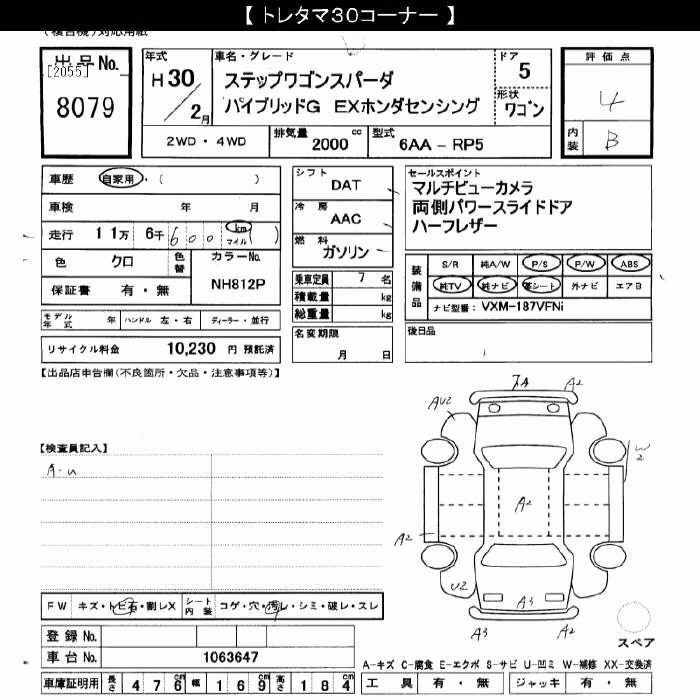 【 トレタマ30コーナー 】
(複合機)対応用紙
出品No.
[2055]
8079
年式
H30
/2月
車名・グレード
ステップワゴンスパーダ
ハイブリッドG EXホンダセンシング
ドア
5
形状
ワゴン
2WD・4WD
排気量 2000 cc
型式 6AA-RP5
評価点
4
内装 B
車歴 自家用・( )
車検 年 月
走行 11万 6千 600 km マイル ( )
色 クロ
色替
カラーNo.
NH812P
保証書 有・無
シフト
DAT
冷房
AAC
燃料
ガソリン
乗車定員 7 名
積載量 kg
総重量 kg
セールスポイント
マルチビューカメラ
両側パワースライドドア
ハーフレザー
装備品
S/R 純A/W P/S P/W ABS
純TV 純ナビ 革シート 外ナビ エアB
ナビ型番: VXM-187VFNi
モデル年式 年 ハンドル 左・右 ディーラー・並行
リサイクル料金 10,230 円 預託済
名変期限
月 日
後日品
【出品店申告欄(不良箇所・欠品・注意事項等)】
【検査員記入】
A-u
7A
A2
AU2
W2
A2
A2
U2
A3
A3
A2
スペア
FW キズ・トビ石・割レX
シート内装 コゲ・穴・汚レ・シミ・破レ・スレ
登録No.
車台No. 1063647
車庫証明用 長さ 476 cm 幅 169 cm 高さ 184 cm
A-キズ C-腐食 E-エクボ S-サビ U-凹ミ W-補修 XX-交換済
工具 有・無 ジャッキ 有・無